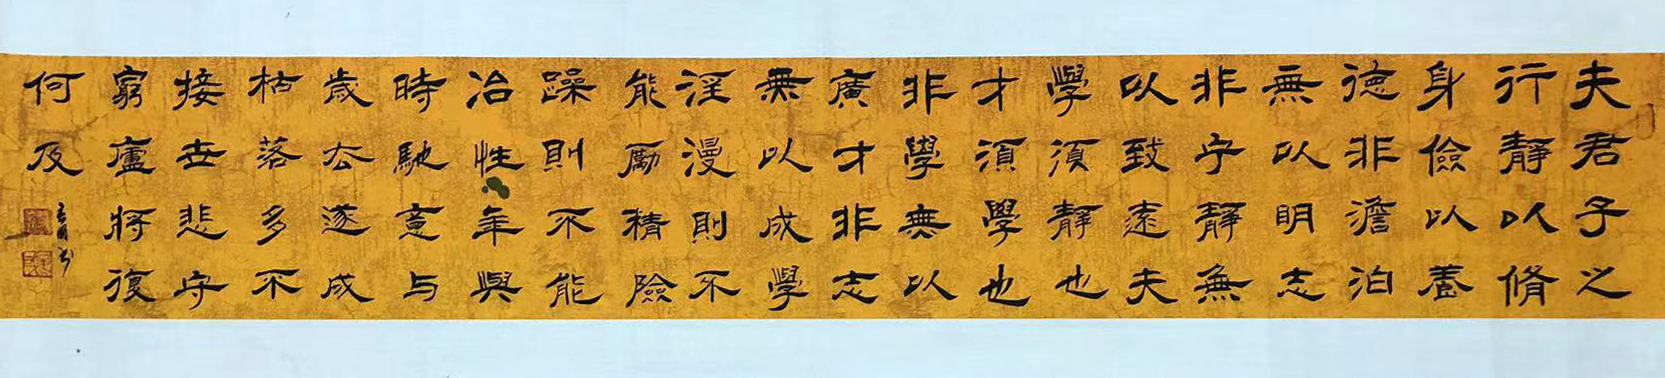 夫君子之
行靜以脩
身儉以養
德非澹泊
無以明志
非宁靜無
以致遠夫
學須靜也
才須學也
非學無以
廣才非志
無以成學
淫漫則不
能勵精險
躁則不能
冶性年與
時馳意与
歲去遂成
枯落多不
接世悲守
窮廬將復
何及